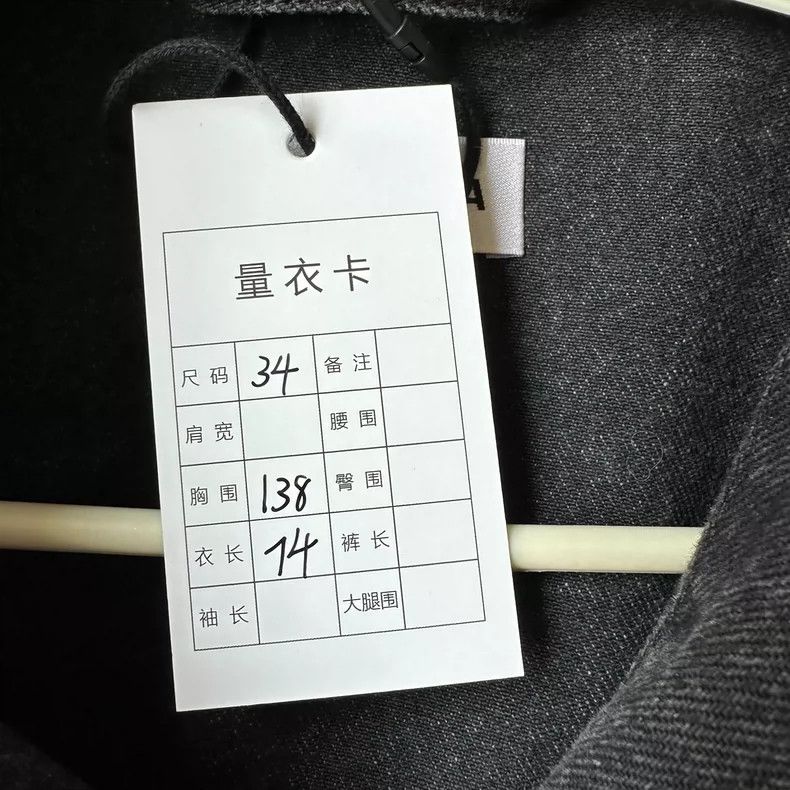 A
量衣卡
尺码 34 备注
肩宽 腰围
胸围 138 臀围
衣长 74 裤长
袖长 大腿围